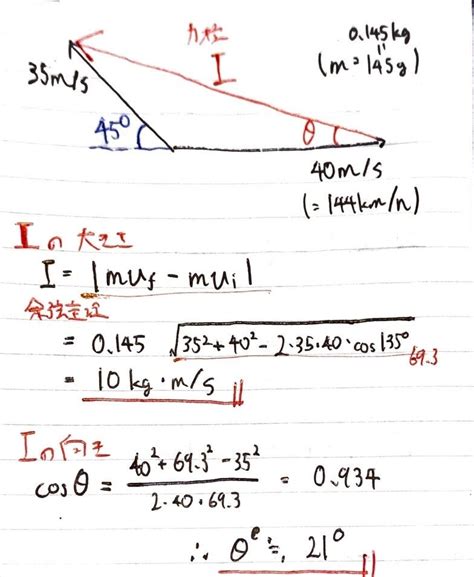 力積
I
0.145kg
(m=145g)
35m/s
45°
θ
40m/s
(=144km/h)
Iの大きさ
I = |mu_f - mu_i|
余弦定理
= 0.145 √35²+40²-2·35·40·cos135°
69.3
= 10 kg·m/s
Iの向き
cosθ = (40²+69.3²-35²)/(2·40·69.3) = 0.934
∴ θ ≒ 21°